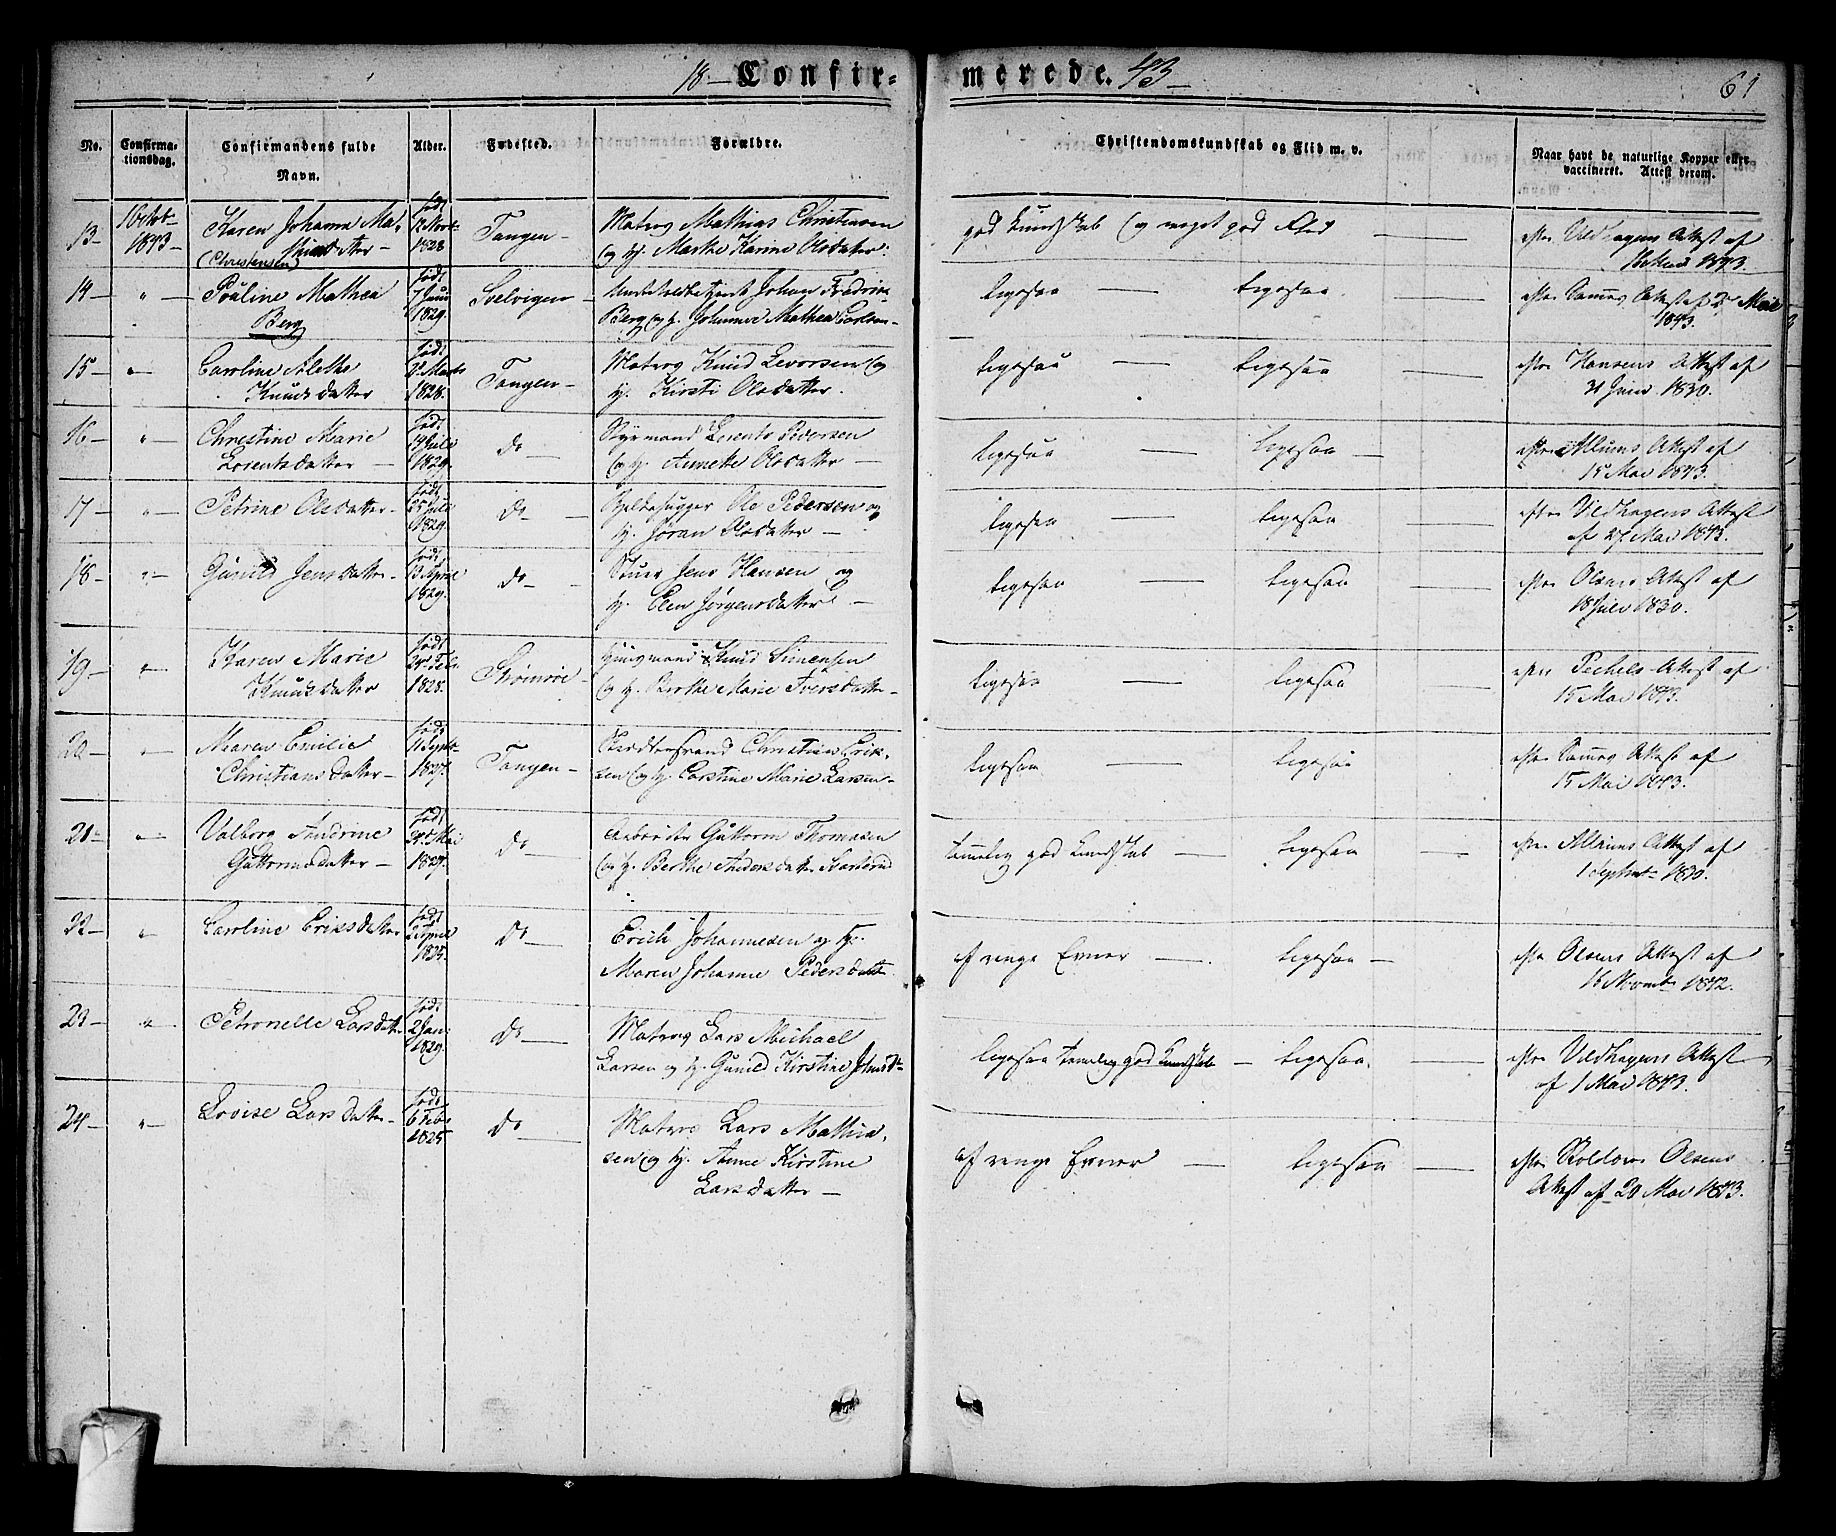 18— Confir-merede. 43—
61
No.
Confirma-tionsdag.
Confirmandens fulde Navn.
Alder.
Fødested.
Forældre.
Christendomskundskab og Flid m. v.
Naar havt de naturlige Kopper eller vaccineret. Attest derom.
13—
1 Octob. 1843—
Karen Johanne Ma-
datter
(Christensen)
født
1828
Tangen—
Matros Mathias Christiansen
og h. Marthe Karine Olsdatter.
god Kundskab og meget god Flid —
efter Vildhagens Attest af
1843.
14—
"—
Pouline Mathea
Berg
født
7 Juni
1829.
Svelvigen—
Johan Fredrik
Berg og h. Johanne Mathea Carlsen—
ligesaa — ligesaa.
efter Sammes Attest af 2 Mai
1843.
15—
"—
Caroline Alethe
Knudsdatter
født
Marts
1828.
Tangen—
Matros Knud Levorsen og
h. Kirsti Olsdatter.
ligesaa — ligesaa —
efter Hansens Attest af
Juni 1830.
16—
"—
Christine Marie
Lorentsdatter —
født
14 Juli
1829.
do—
Styrmand Lorents Pedersen
og h. Annette Olsdatter —
ligesaa — ligesaa —
efter Attest af
15 Mai 1843.
17—
"—
Petrine Olsdatter—
født
25 Juli
1829.
do—
Ole Pedersen og
h. Joran Olsdatter —
ligesaa — ligesaa
efter Vildhagens Attest
af 27 Mai 1843.
18—
"—
Gunild Jensdatter—
født
13 April
1829.
do—
Jens Hansen og
h. Elen Jørgensdatter —
ligesaa — ligesaa
efter Olsens Attest af
18 Juli 1830.
19—
"
Karen Marie
Knudsdatter
født
24 Feb.
1828.
Strømsøe—
Knud Simensen
og h. Berthe Marie Iversdatter—
ligesaa — ligesaa —
efter Pechels Attest af
15 Mai 1843.
20—
"—
Maren Emilie
Christiansdatter—
født
11 Septb.
1827.
Tangen—
Christian Erik-
sen og h. Carstine Marie Larsen—
ligesaa — ligesaa
efter Sammes Attest af
15 Mai 1843.
21—
"—
Valborg Andrine
Guttormsdatter—
født
Mai
1827.
do—
Arbeider Guttorm Thomesen
og h. Berthe Andersdatter
temmelig god Kundskab — ligesaa —
efter Attest af
1 Septemb.
22—
"—
Caroline Eriksdatter
født
2 April
1825.
do—
Erich Johannesen og h.
Maren Johanne Pedersdatt.
af ringe Evner — ligesaa —
efter Olsens Attest af
16 Novemb. 1842.
23—
"
Petronelle Larsdatter
født
2 Jan.
1829.
do—
Matros Lars Michael
Larsen og h. Gunild Kirstine
ligesaa temmelig god Kundskab — ligesaa. —
efter Vildhagens Attest
af 1 Mai 1843.
24—
"—
Lovise Larsdatter—
født
6 Feb.
1825.
do—
Matros Lars Mathia-
sen og h. Anne Kirstine
Larsdatter —
af ringe Evner — ligesaa —
efter Olsens
Attest af 20 Mai 1843.